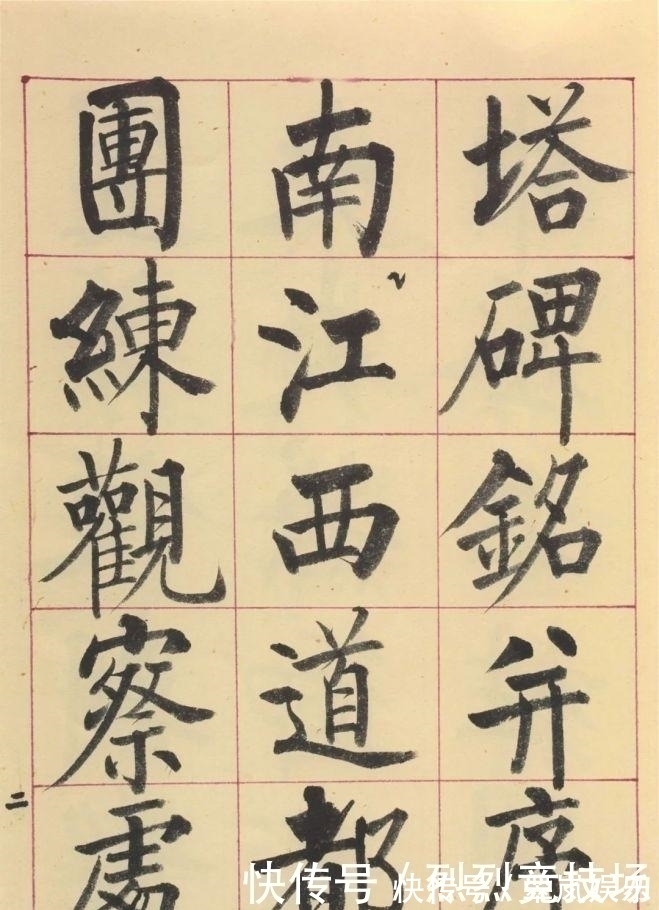 塔碑銘并序
南江西道都
團練觀察處
二
快传号/烈烈竞技场
快传号